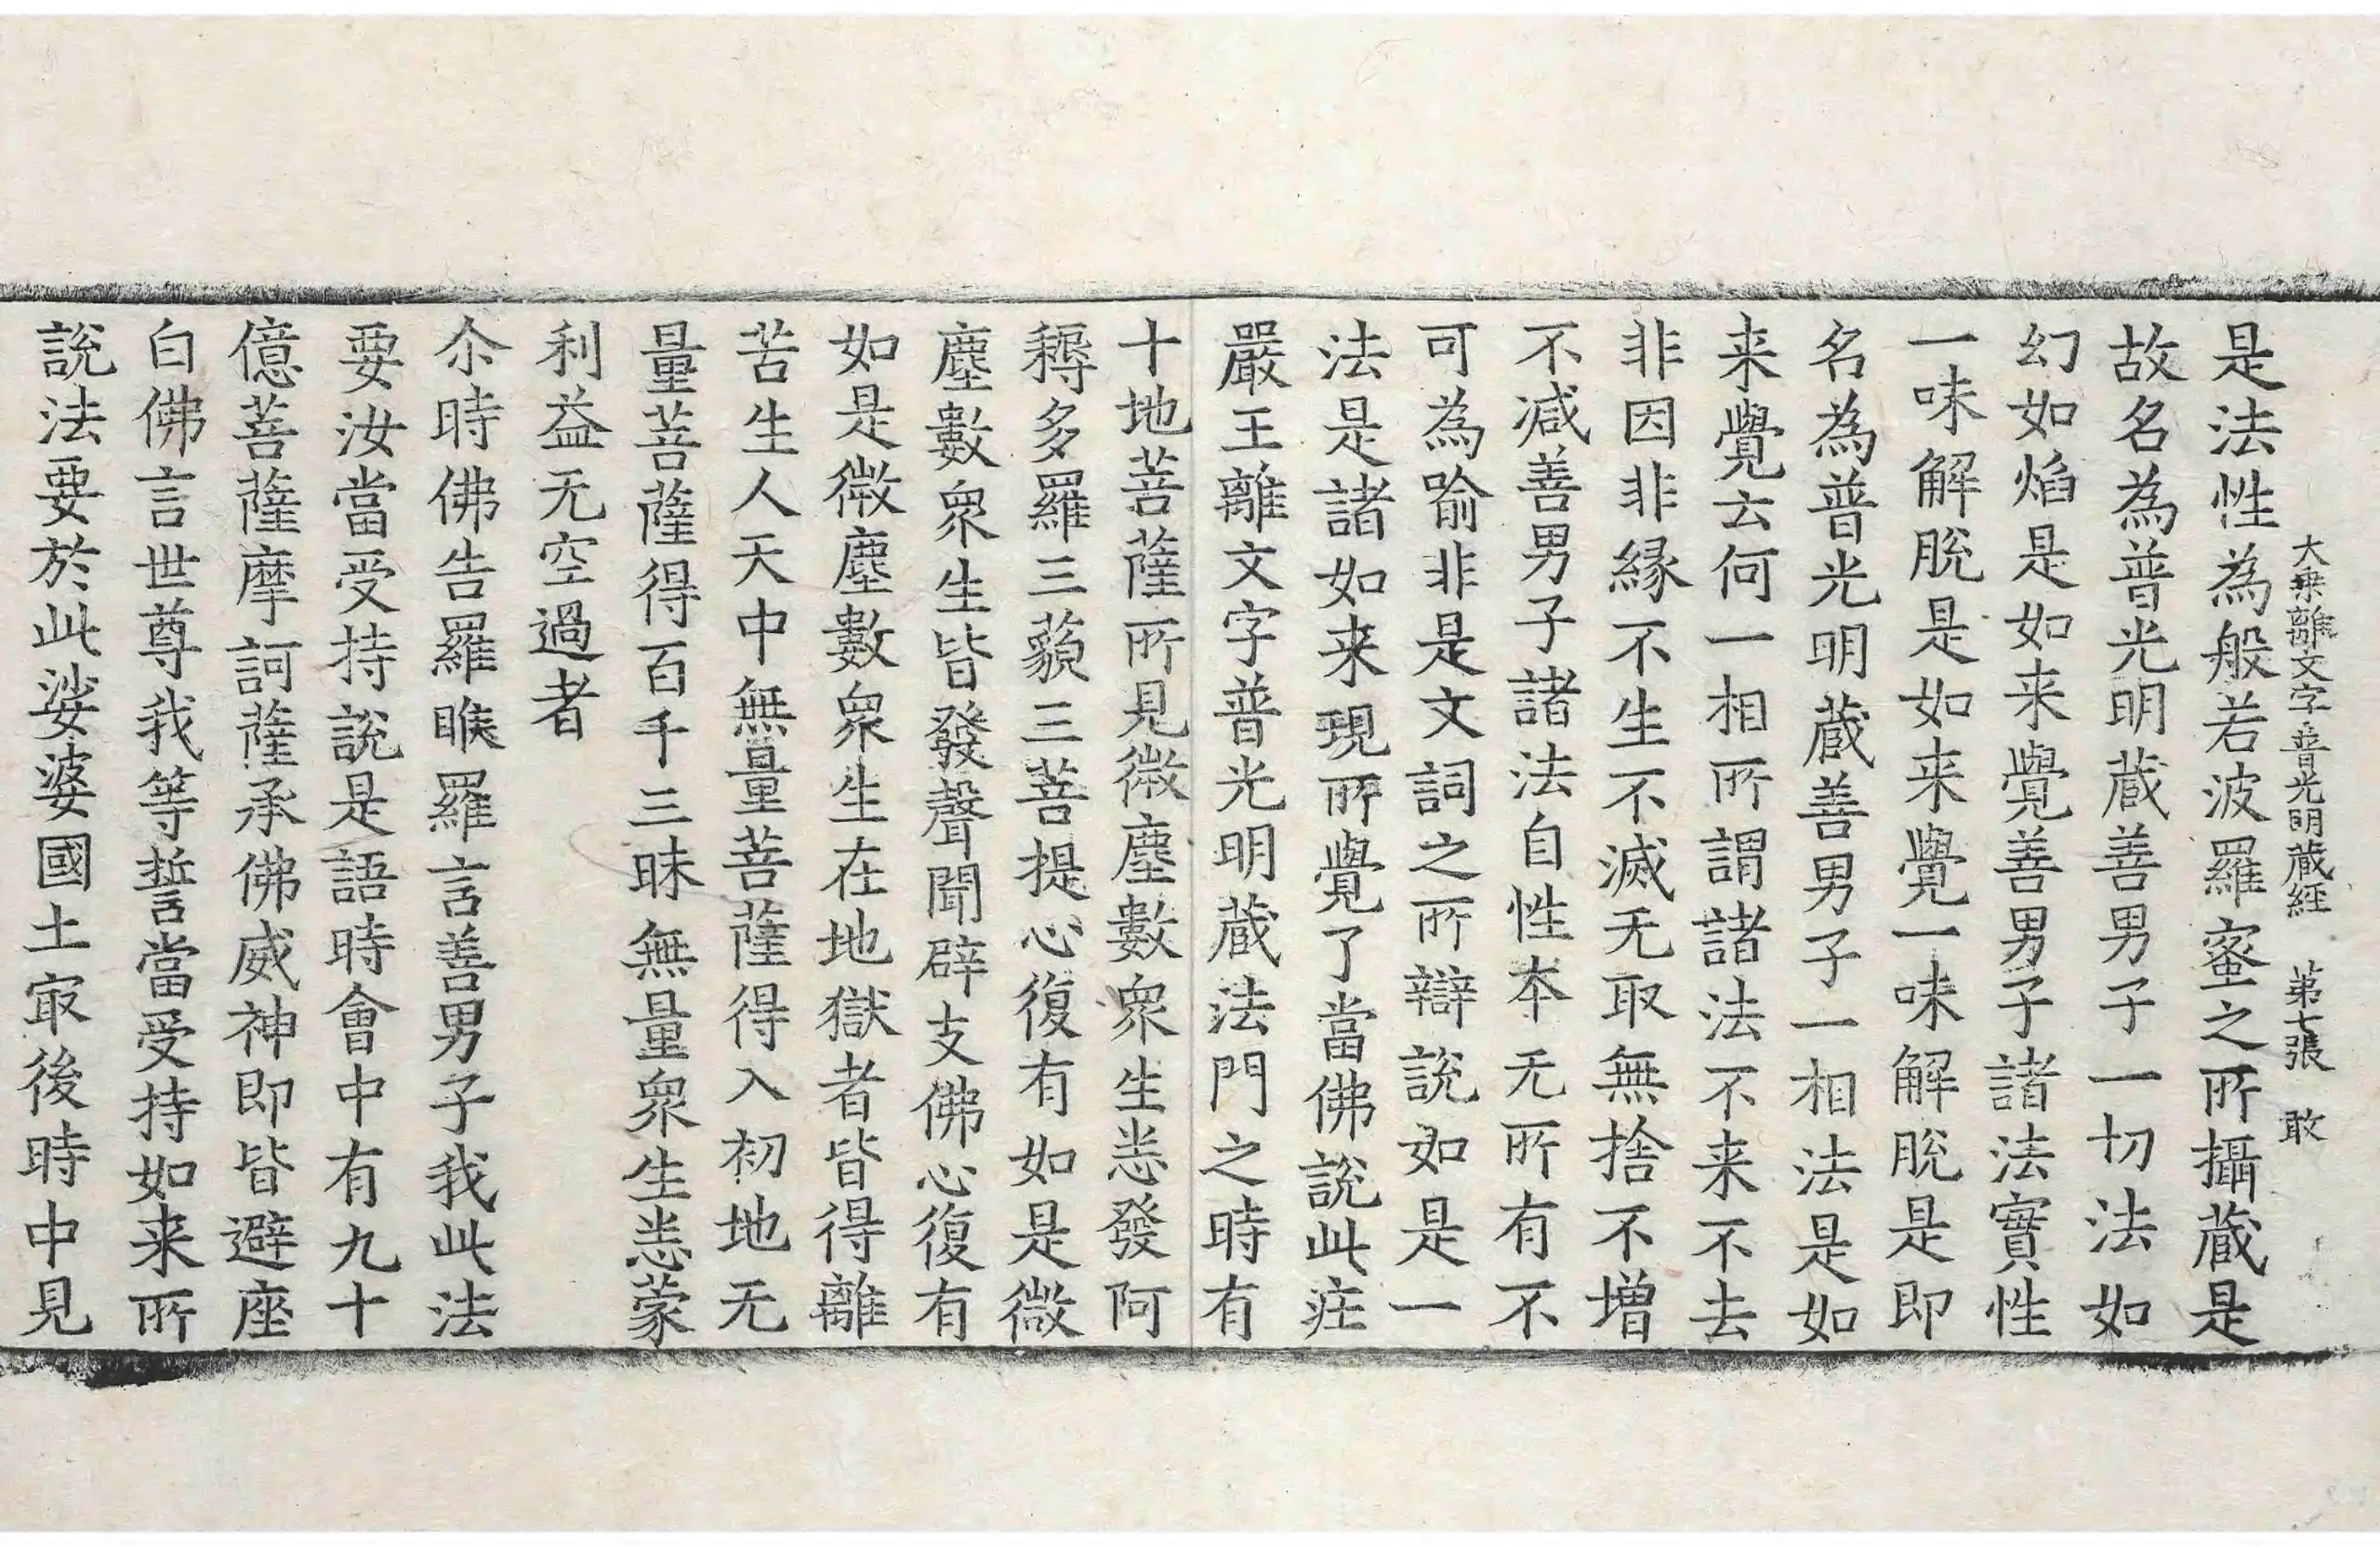 大乗離文字普光明蔵経 第七張 敢
是法性為般若波羅蜜之所攝蔵是
故名為普光明蔵善男子一切法如
幻如焰是如来覺善男子諸法實性
一味解脫是如来覺一味解脫是即
名為普光明蔵善男子一相法是如
来覺云何一相所謂諸法不来不去
非因非緣不生不滅无取無捨不增
不減善男子諸法自性本无所有不
可為喻非是文詞之所辯說如是一
法是諸如来現所覺了當佛說此㽵
嚴王離文字普光明蔵法門之時有
十地菩薩所見微塵數衆生悉發阿
耨多羅三藐三菩提心復有如是微
塵數衆生皆發聲聞辟支佛心復有
如是微塵數衆生在地獄者皆得離
苦生人天中無量菩薩得入初地无
量菩薩得百千三昧無量衆生悉蒙
利益无空過者
尒時佛告羅睺羅言善男子我此法
要汝當受持說是語時會中有九十
億菩薩摩訶薩承佛威神即皆避座
白佛言世尊我等誓當受持如来所
說法要於此娑婆國土㝡後時中見